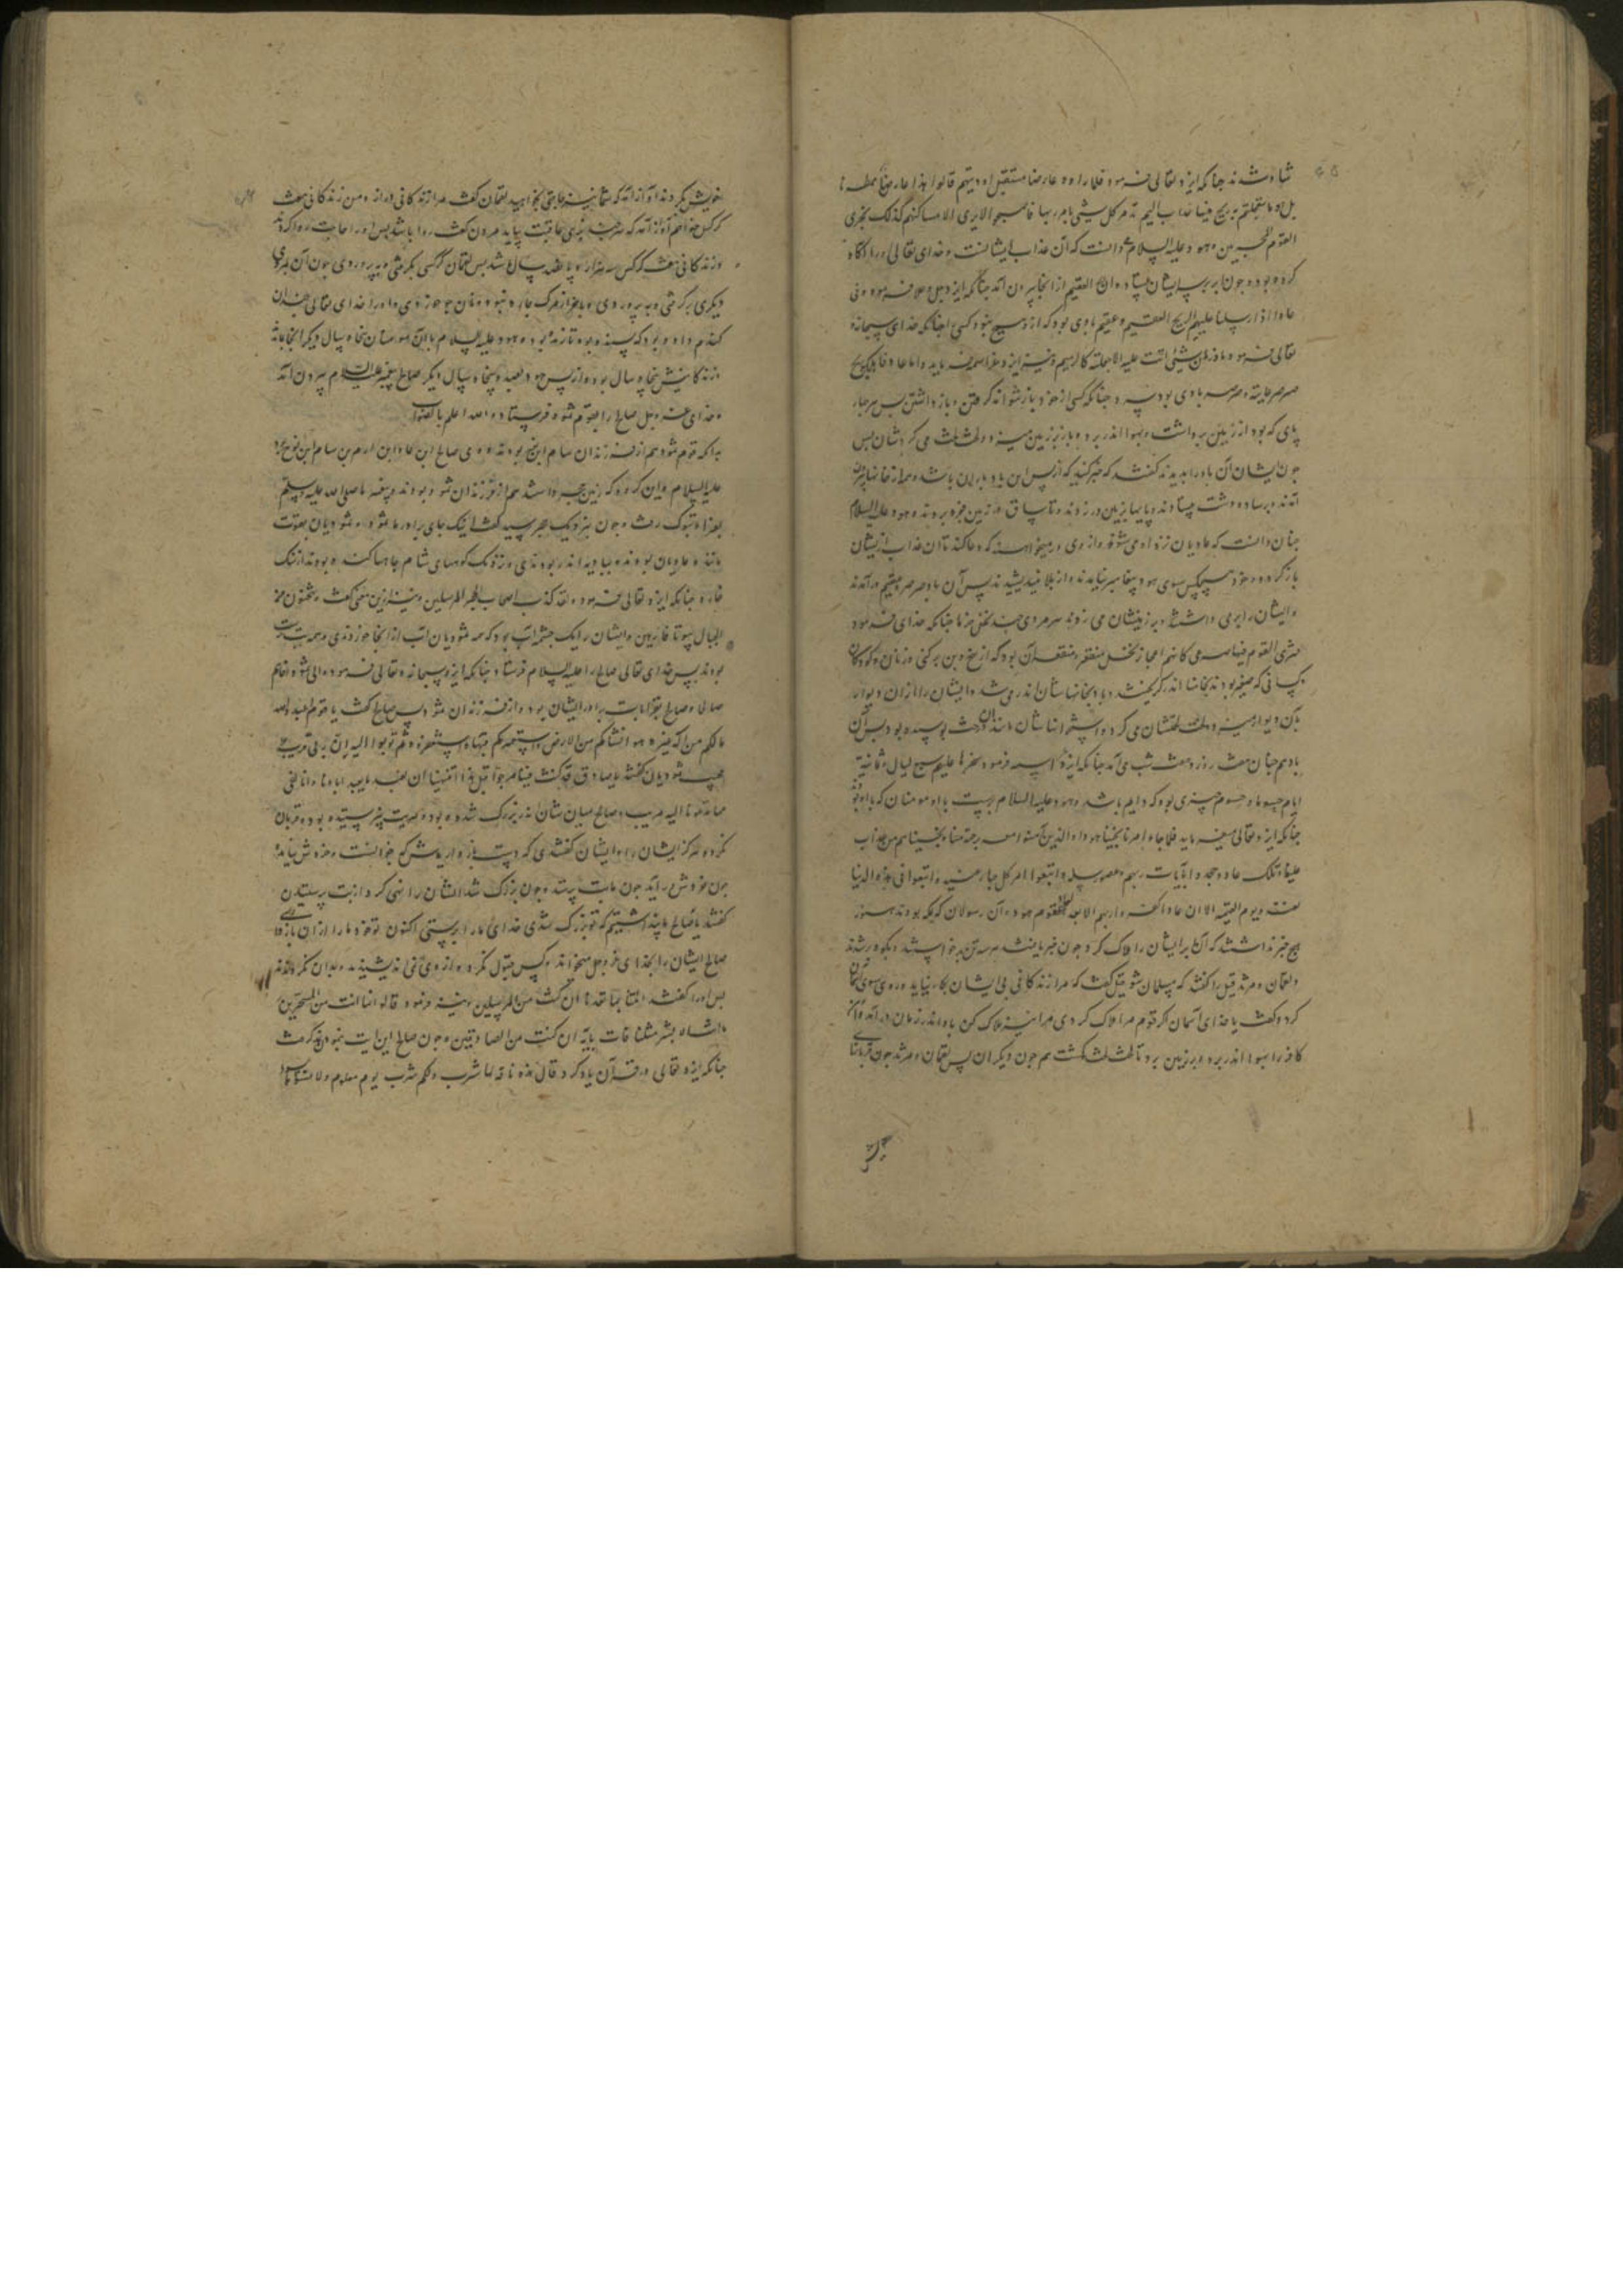 شاد شدند چنانکه ایزد تعالی فرمود فلما راوه عارضا مستقبل اودیتهم قالوا هذا عارض ممطرنا
بل هو ما استعجلتم به ریح فیها عذاب الیم تدمر کل شیء بامر ربها فاصبحوا لا یری الا مساکنهم کذلک نجزی
القوم المجرمین و هود علیه السلام دانست که آن عذاب ایشانست و خدای تعالی او را آگاه
کرده بود و چون برابر ایشان الریح العقیم از آنجا بیرون آمد چنانکه ایزد جل و علا فرمود و فی
عاد اذ ارسلنا علیهم الریح العقیم و عقیم بادی بود که ازو هیچ نبود کسی را چنانکه خدای سبحانه و
تعالی فرمود ما تذر من شیء اتت علیه الا جعلته کالرمیم و نیز ایزد عز اسمه فرماید و اما عاد فاهلکوا بریح
صرصر عاتیة و صرصر بادی بود سرد چنانکه کسی از خود باز نتواند گرفتن و باز داشتن پس هر چهار
پای که بود از زمین برداشت و بهوا اندر برد و باز بزمین میزد و لخت لخت می کردشان پس
چون ایشان آن باد را بدیدند گفتند که خبر کنید که از پس این باد باران باشد و همه از خانها بیرون
آمدند و بر ساده دشت بیستادند و پایها بزمین در زدند و تا ساق در زمین فرو بردند و هود علیه السلام
چنان دانست که عادیان نزد او می شوند و از وی در میخواهند که دعا کند تا آن عذاب از ایشان
باز گردد و خود هیچکس سوی هود پیغامبر نیامدند و از بلا نیندیشیدند پس آن باد صرصر عقیم درآمد
و ایشان را برمی داشت و بر زمینشان می زد و هر مردی چند نخل خرما چنانکه خدای فرمود
فتری القوم فیها صرعی کانهم اعجاز نخل منقعر و منقعر آن بود که از بیخ و بن برکنی و زنان و کودکان
کسانی که ضعیف بودند بخانها اندر گریختند و باد بخانهاشان اندر می شد و ایشان را از آن دیوار
بآن دیوار میزد و لخت لختشان می کرد و استخوانهاشان مانند آن درخت پوسیده بود پس آن
باد هم چنان هفت روز و هفت شب می آمد چنانکه ایزد فرمود سخرها علیهم سبع لیال و ثمانیة
ایام حسوما و حسوم چیزی بود که دایم باشد و هود علیه السلام برست با آن مومنان که با او بودند
چنانکه ایزد تعالی میفرماید فلما جاء امرنا نجینا هودا و الذین آمنوا معه برحمة منا و نجیناهم من عذاب
غلیظ و تلک عاد جحدوا بآیات ربهم و عصوا رسله و اتبعوا امر کل جبار عنید و اتبعوا فی هذه الدنیا
لعنة و یوم القیمة الا ان عادا کفروا ربهم الا بعدا لعاد قوم هود و آن رسولان که بمکه بودند هنوز
هیچ خبر نداشتند که آن باد ایشان را هلاک کرد چون خبر یافتند هر سه تن برخواستند و بکوه بر شدند
و لقمان و مرثد قیل را گفتند که مسلمان شو قیل گفت که مرا زندگانی بی ایشان بکار نیاید و روی سوی آسمان
کرد و گفت یا خدای آسمان اگر قوم مرا هلاک کردی مرا نیز هلاک کن باد اندر زمان درآمد و آن
کافر را بهوا اندر برد و بر زمین برد تا لخت لخت گشت هم چون دیگران پس لقمان و مرثد چون قربانها
خویش بکردند آواز آمد که شما نیز حاجتی بخواهید لقمان گفت مرا زندگانی دراز ده من زندگانی هفت
کرکس خواهم آواز آمد که هر چند بزی عاقبت بباید مردن گفت روا باشد پس او را حاجت روا کردند
و زندگانی هفت کرکس سه هزار و پانصد سال شد پس لقمان کرکسی بگرفتی و بپروردی چون آن بمردی
دیگری برگرفتی و بپروردی و بآخر از مرگ چاره نبود و نان جو خوردی و او را خدای تعالی چندان
گندم داده بود که بسنده بود تا زنده بود و هود علیه السلام با آن مومنان پنجاه سال دیگر آنجا بماند
و زندگانیش پنجاه سال بود و از پس هود بصد و پنجاه سال دیگر صالح پیغمبر علیه السلام بیرون آمد
و خدای عز و جل صالح را بقوم ثمود فرستاد و الله اعلم بالصواب
بدانکه قوم ثمود هم از فرزندان سام ابن نوح بودند و صالح ابن عاد ابن ارم بن سام ابن نوح بود
علیه السلام و این گروه که زمین حجر داشتند هم از فرزندان ثمود بودند و پیغمبر ما صلی الله علیه و سلم
بغزاء تبوک رفت و چون بنزدیک حجر رسید گفت اینک جای برادر ما ثمود و ثمودیان بقوت
مانند عادیان بودند و ببادیه اندر بودندی و نزدیک کوههای شام چاهها کنده بودند از سنگ
خاره چنانکه ایزد تعالی فرمود و لقد کذب اصحاب الحجر المرسلین و نیز ازین معنی گفت و ینحتون من
الجبال بیوتا فارهین و ایشان را یک چشمه آب بود که همه ثمودیان آب از آنجا خوردندی و همه بت پرست
بودند پس خدای تعالی صالح را علیه السلام فرستاد چنانکه ایزد سبحانه و تعالی فرمود و الی ثمود اخاهم
صالحا و صالح بقرابت برادر ایشان بود و از فرزندان ثمود پس صالح گفت یا قوم اعبدوا الله
مالکم من اله غیره هو انشاکم من الارض و استعمرکم فیها فاستغفروه ثم توبوا الیه ان ربی قریب
مجیب ثمودیان گفتند یا صالح قد کنت فینا مرجوا قبل هذا اتنهینا ان نعبد ما یعبد آباؤنا و اننا لفی
مما تدعونا الیه مریب و صالح میان شان اندر بزرگ شده بود و هرگز بت نپرستیده بود و قربان
نکرده هرگز ایشان را و ایشان گفتندی که دست بازداریمش که خوانست و خردش نیامده
چون خردش آید چون ما بت پرستد و چون بزرگ شد ایشان را نهی کرد از بت پرستیدن
گفتند یا صالح ما پنداشتیم که تو بزرگ شدی خدای ما را پرستی اکنون تو خود ما را از آن باز داری
صالح ایشان را بخدای عز و جل میخواند و کس قبول نکرد و از وی نمی اندیشیدند و بدان نگرویدند
پس او را گفتند ائتنا بما تعدنا ان کنت من المرسلین و نیز فرمود قالوا انما انت من المسحرین
ما انت الا بشر مثلنا فات بآیة ان کنت من الصادقین و چون صالح این آیت بنمودند گرفت
چنانکه ایزد تعالی در قرآن یاد کرد قال هذه ناقة لها شرب و لکم شرب یوم معلوم و لا تمسوها